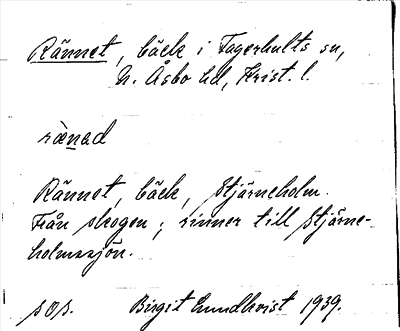 Rännet, bäck i Fagerhults sn,
N. Åsbo hd, Krist. l.
rænad
Rännet, bäck, Stjärneholm.
Från skogen; rinner till Stjärne-
holmssjön.
sos. Birgit Lundkvist 1939.